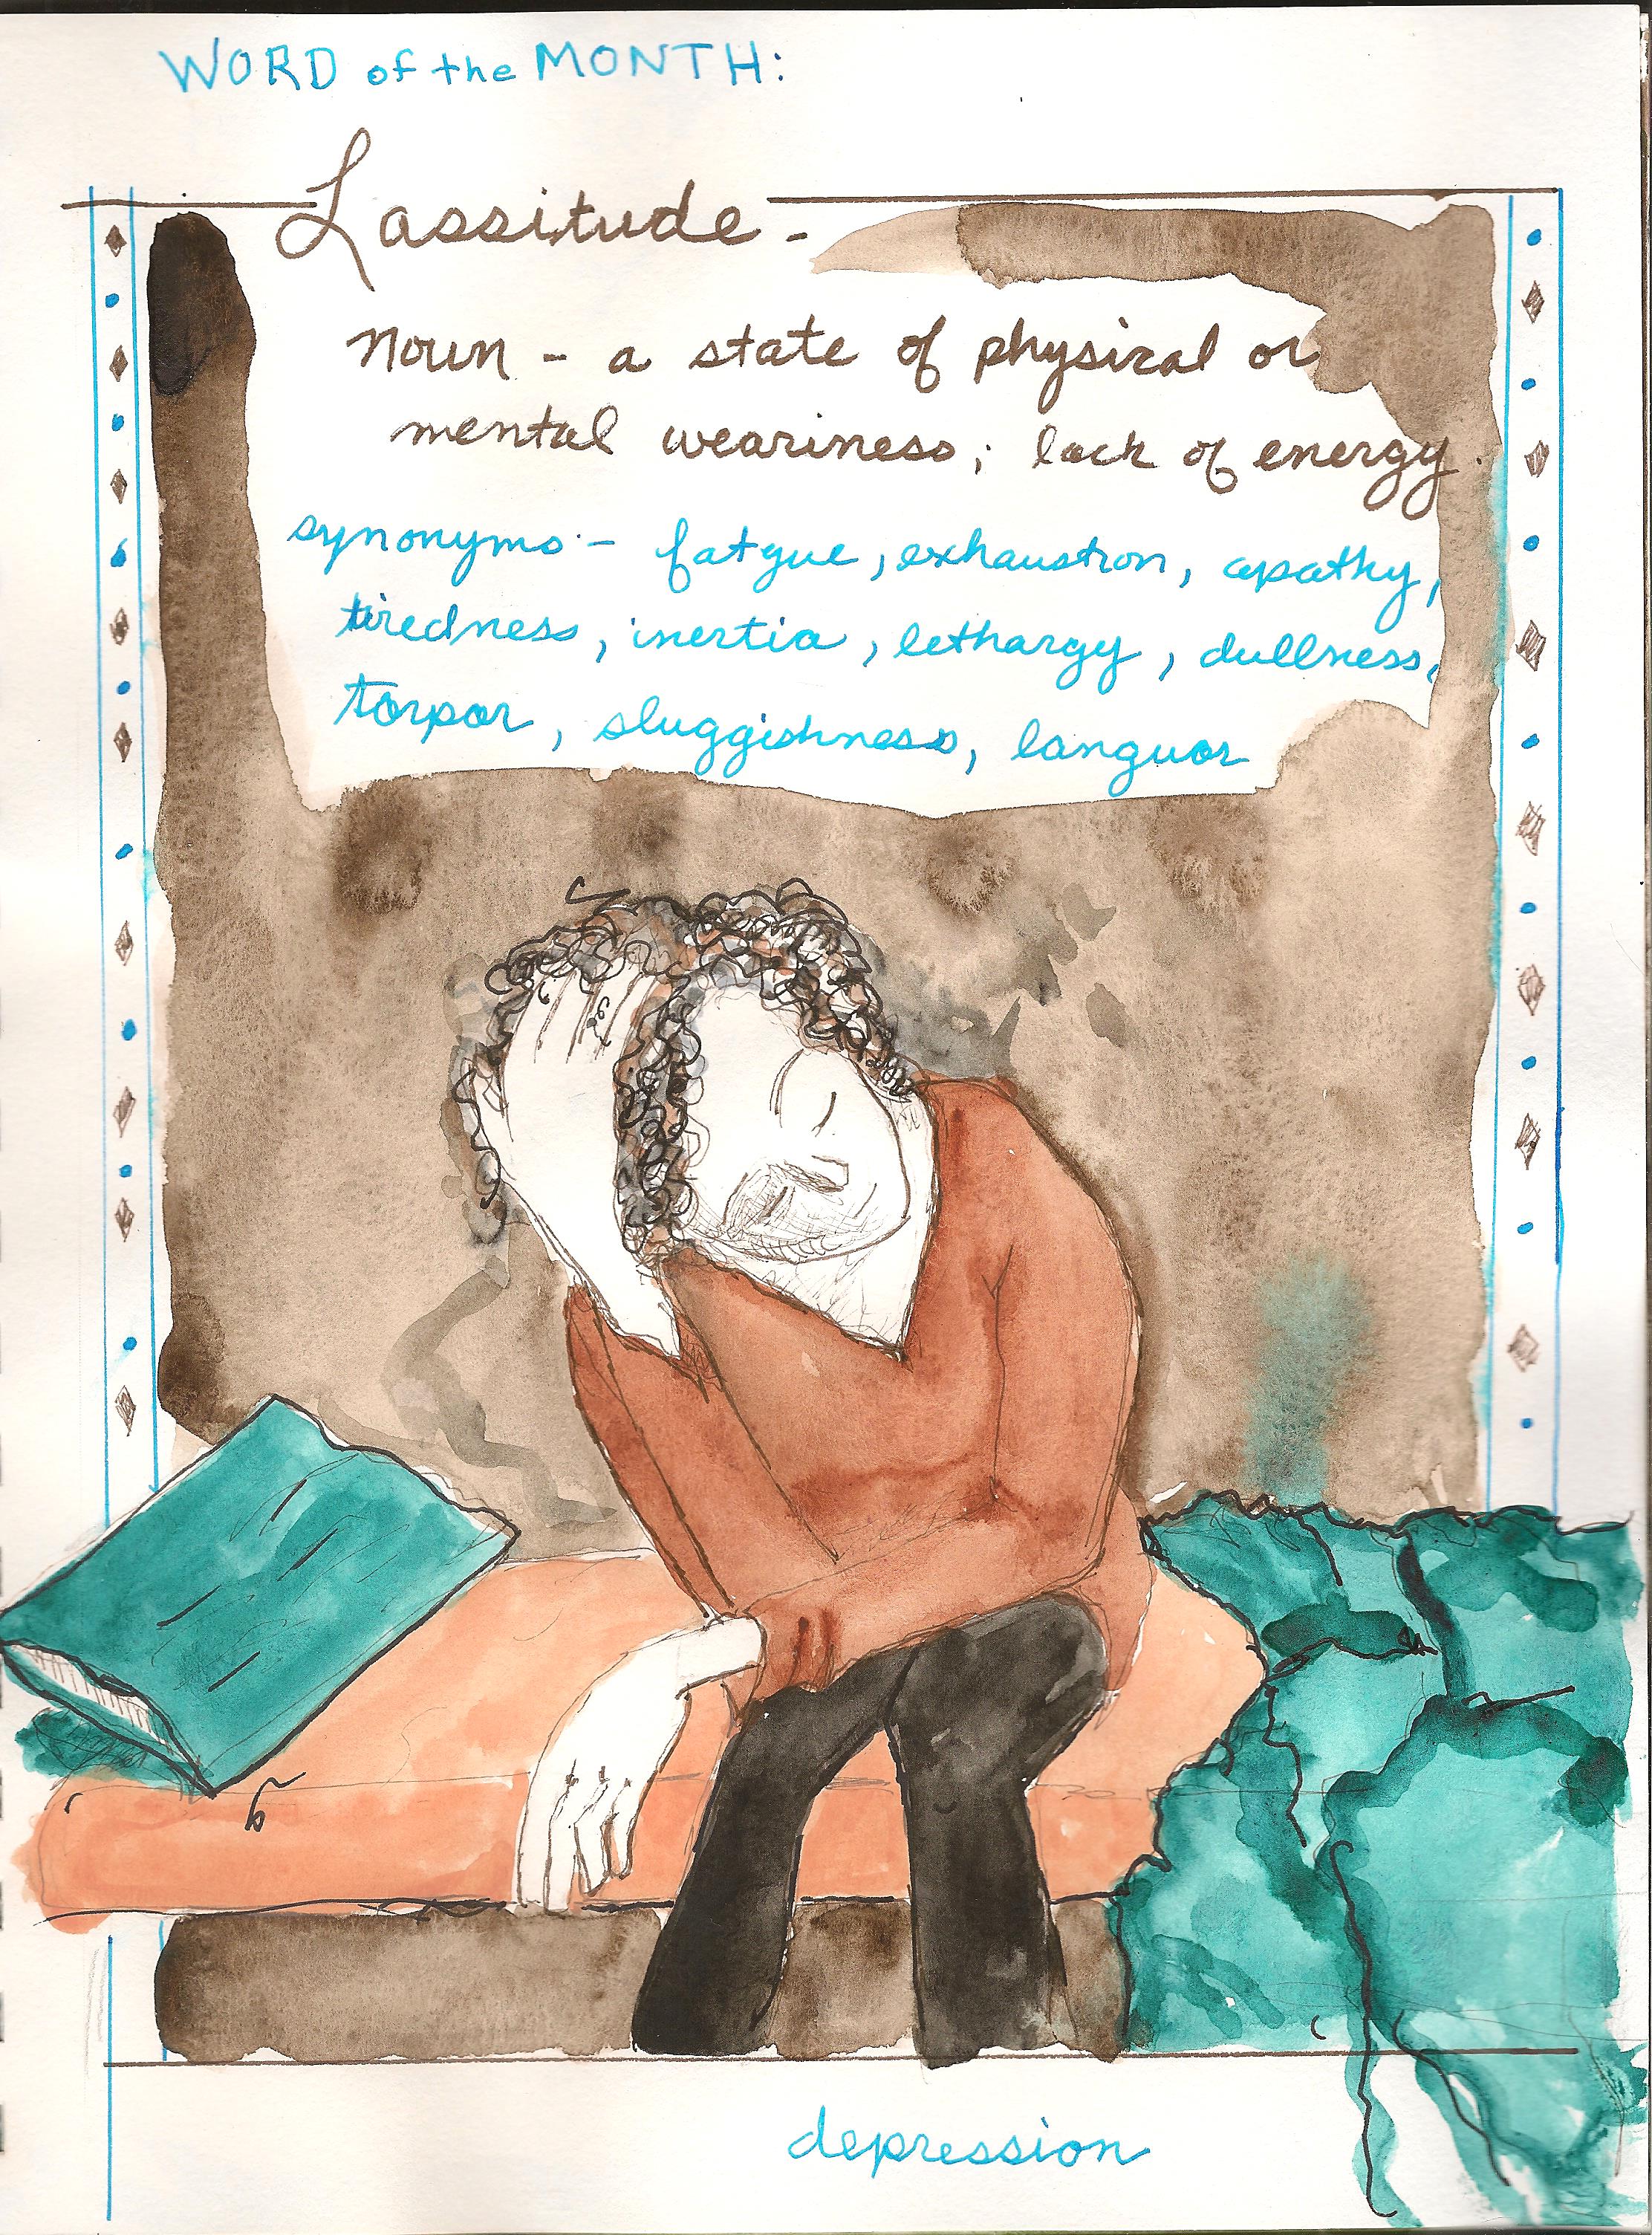 WORD of the MONTH:
Lassitude -
Noun - a state of physical or
mental weariness; lack of energy.
synonyms - fatgue, exhaustion, apathy,
tiredness, inertia, lethargy, dullness,
torpor, sluggishness, languor
depression